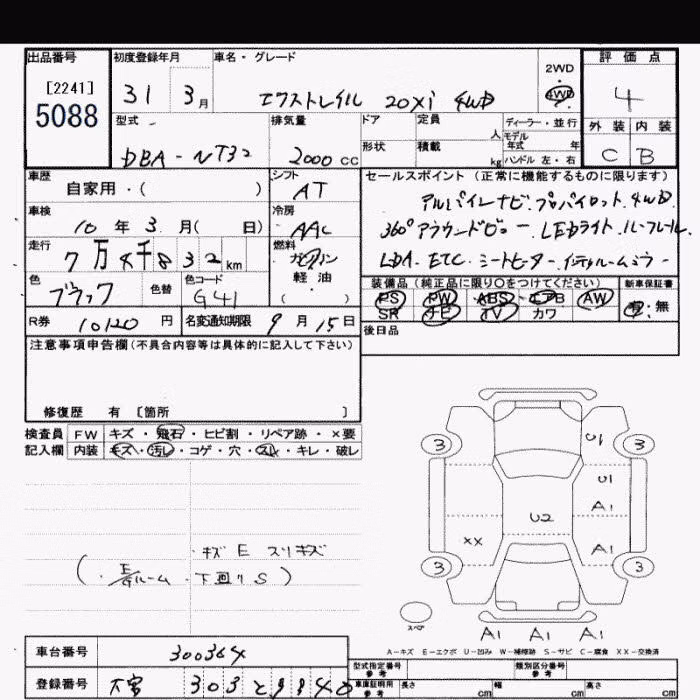 出品番号 初度登録年月 車名・グレード 評価点
[2241]
5088
31 3月 エクストレイル 20Xi 4WD
2WD・4WD
4
型式 排気量 ドア 定員 人 ディーラー・並行 外装 内装
モデル年式 年式
DBA-NT32 2000 CC 形状 積載 kg ハンドル 左・右 C B
車歴 シフト セールスポイント(正常に機能するものに限ります)
自家用・( ) AT
アルパインナビ・プロパイロット・4WD
車検 冷房
10年 3月( 日) AAC
360°アラウンドビュー・LEDライト・ルーフレール
走行 燃料
7万 8 32 km ガソリン
軽・油
( )
LDA・ETC・シートヒーター・インテリルームミラー
色 色替 色コード
ブラック G41
装備品(純正品に限り○をつけてください) 新車保証書
PS PW ABS エアB AW 有・無
SR ナビ TV カワ
R券 10120 円 名変通知期限 9月15日
後日品
注意事項申告欄(不具合内容等は具体的に記入して下さい)
修復歴 有 [箇所 ]
検査員 FW キズ・飛石・ヒビ割・リペア跡・×要
記入欄 内装 キズ・汚レ・コゲ・穴・スレ・キレ・破レ
・キズ E スリキズ
( ・E/Gルーム ・下回りS )
3 U1 3
U1
A1
U2
XX A1
3 3
スペア
A1 A1 A1
A-キズ E-エクボ U-凹み W-補修跡 S-サビ C-腐食 XX-交換済
車台番号 300364
登録番号 大宮 303 と 9940
型式指定番号 参考 類別区分番号 参考
車庫証明用 参考 長さ cm 幅 cm 高さ cm